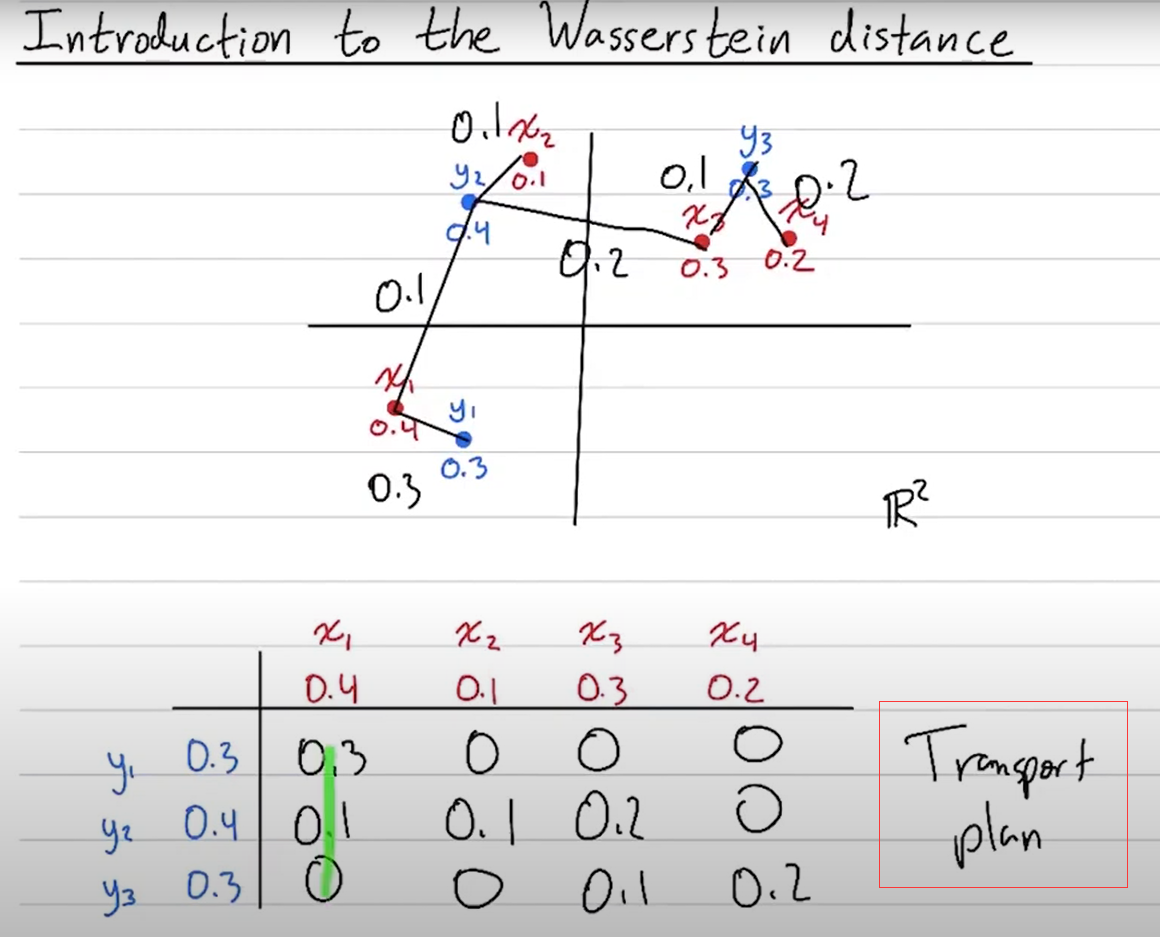 Introduction to the Wasserstein distance
0.1 x₂
y₃
y₂ 0.1
0.1 0.3 0.2
x₃ x₄
0.4
0.2 0.3 0.2
0.1
x₁
0.4 y₁
0.3
0.3
ℝ²
x₁ x₂ x₃ x₄
0.4 0.1 0.3 0.2
y₁ 0.3 0.3 0 0 0
y₂ 0.4 0.1 0.1 0.2 0
y₃ 0.3 0 0 0.1 0.2
Transport
plan